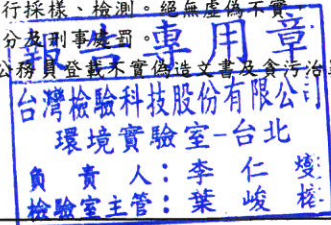 行採樣、檢測。絕無虛偽不實
分及刑事處罰。
報告專用章
公務員登載不實偽造文書及貪污治
台灣檢驗科技股份有限公司
環境實驗室－台北
負責人：李仁燰
檢驗室主管：葉峻榕